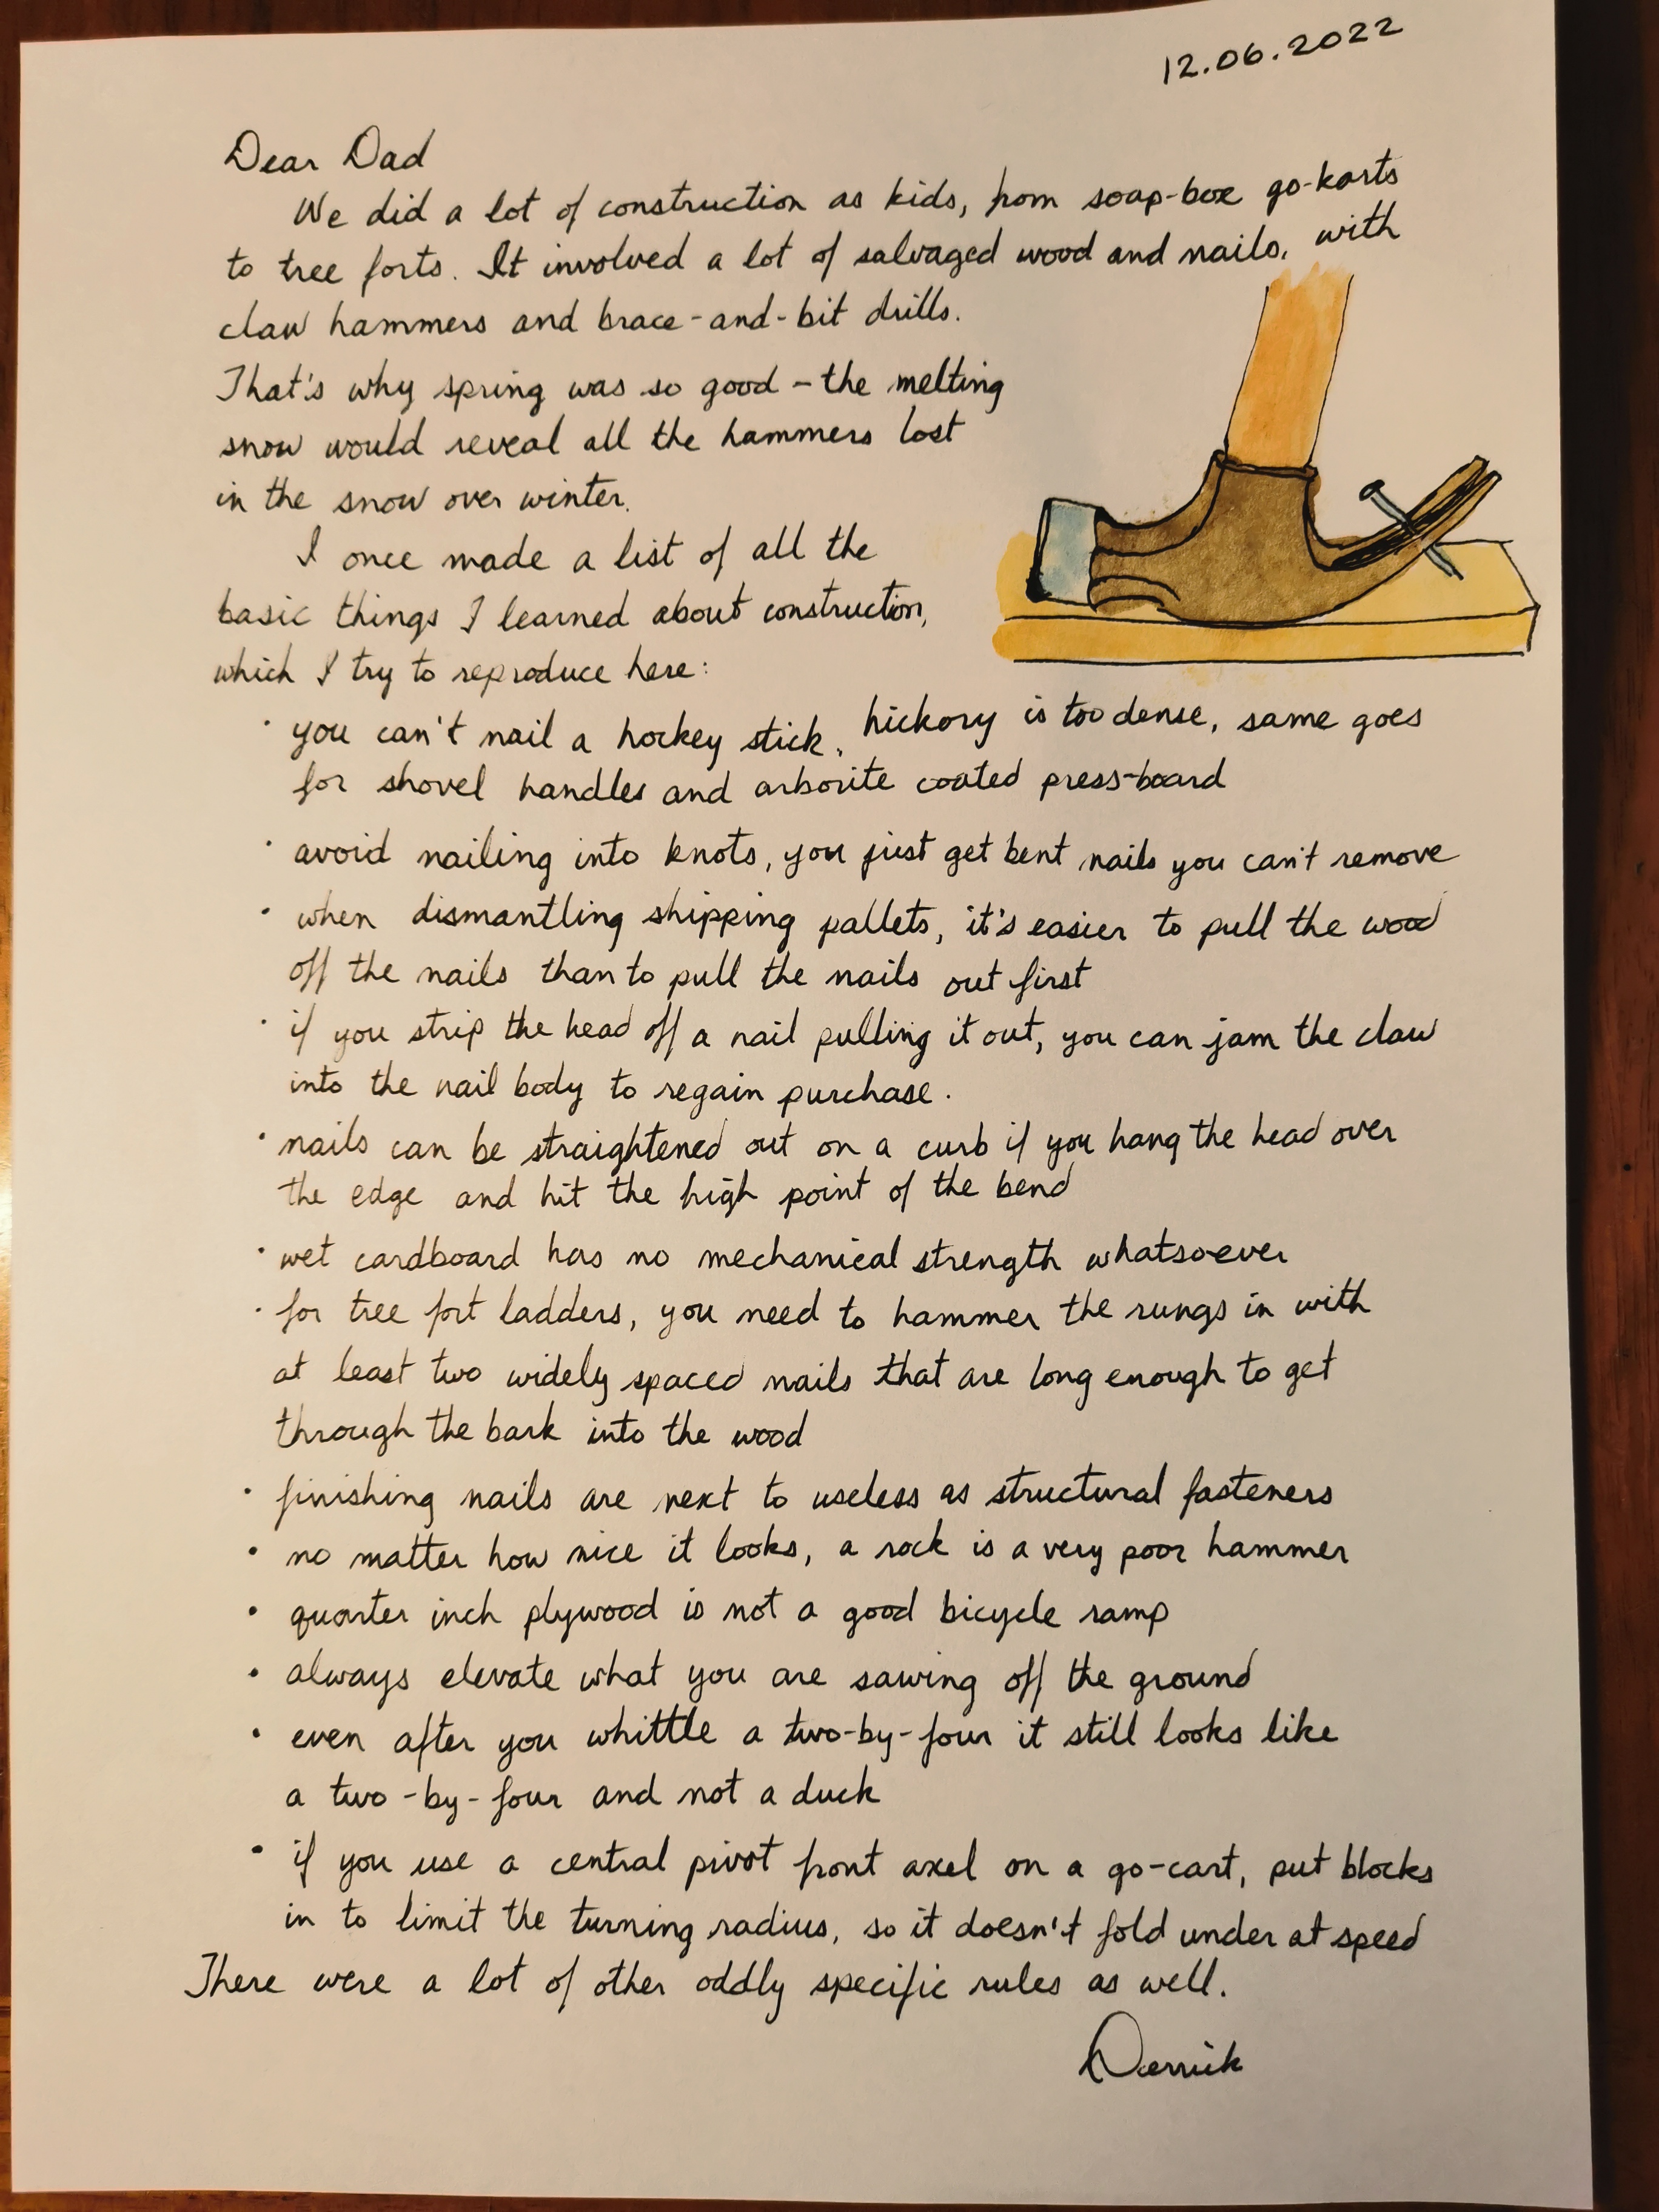 12.06.2022
Dear Dad
We did a lot of construction as kids, from soap-box go-karts
to tree forts. It involved a lot of salvaged wood and nails, with
claw hammers and brace-and-bit drills.
That's why spring was so good - the melting
snow would reveal all the hammers lost
in the snow over winter.
I once made a list of all the
basic things I learned about construction,
which I try to reproduce here:
· you can't nail a hockey stick, hickory is too dense, same goes
for shovel handles and arborite coated press-board
· avoid nailing into knots, you just get bent nails you can't remove
· when dismantling shipping pallets, it's easier to pull the wood
off the nails than to pull the nails out first
· if you strip the head off a nail pulling it out, you can jam the claw
into the nail body to regain purchase.
· nails can be straightened out on a curb if you hang the head over
the edge and hit the high point of the bend
· wet cardboard has no mechanical strength whatsoever
· for tree fort ladders, you need to hammer the rungs in with
at least two widely spaced nails that are long enough to get
through the bark into the wood
· finishing nails are next to useless as structural fasteners
· no matter how nice it looks, a rock is a very poor hammer
· quarter inch plywood is not a good bicycle ramp
· always elevate what you are sawing off the ground
· even after you whittle a two-by-four it still looks like
a two-by-four and not a duck
· if you use a central pivot front axel on a go-cart, put blocks
in to limit the turning radius, so it doesn't fold under at speed
There were a lot of other oddly specific rules as well.
Derrick